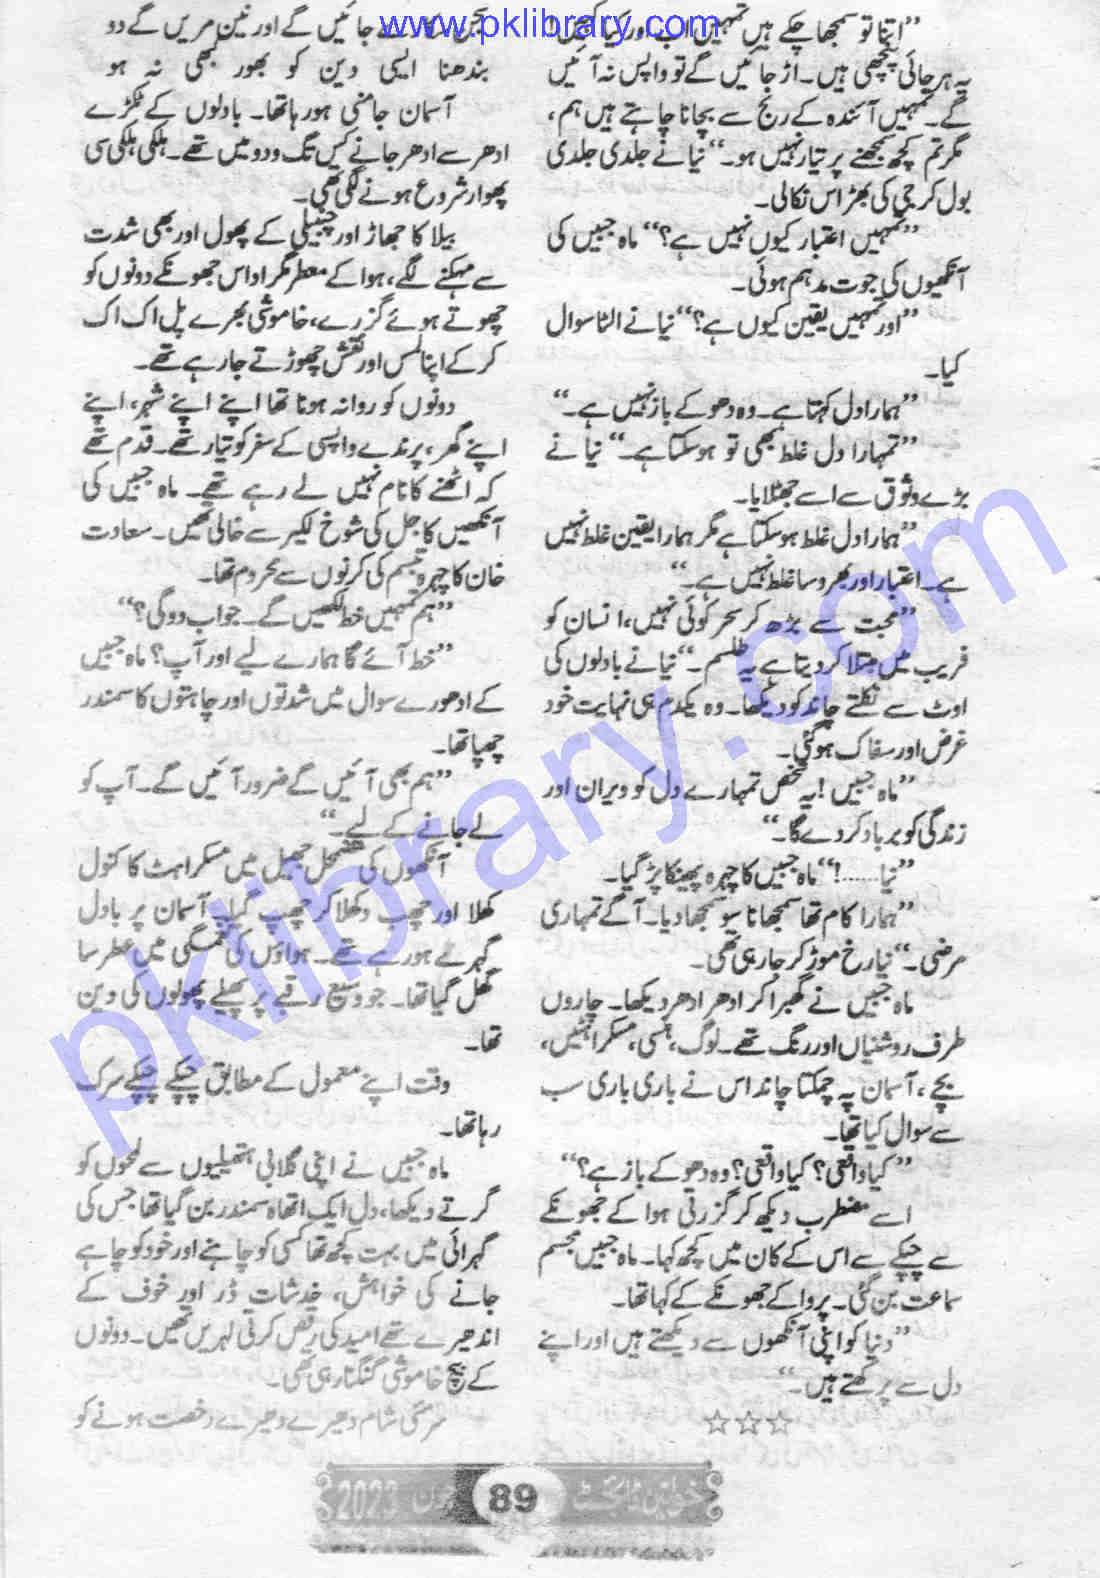 www.pklibrary.com
”اتنا تو سمجھا چکے ہیں تمہیں اب اور کیا کہیں!
یہ ہرجائی پنچھی ہیں۔ اڑ جائیں گے تو واپس نہ آئیں
گے۔ تمہیں آئندہ کے رنج سے بچانا چاہتے ہیں ہم،
مگر تم کچھ سمجھنے پر تیار نہیں ہو۔“ نیا نے جلدی جلدی
بول کر جی کی بھڑاس نکالی۔
”تمہیں اعتبار کیوں نہیں ہے؟“ ماہ جبیں کی
آنکھیوں کی جوت مدہم ہوئی۔
”اور تمہیں یقین کیوں ہے؟“ نیا نے الٹا سوال
کیا۔
”ہمارا دل کہتا ہے۔ وہ دھوکے باز نہیں ہے۔“
”تمہارا دل غلط بھی تو ہو سکتا ہے۔“ نیا نے
بڑے وثوق سے اسے جھٹلایا۔
”ہمارا دل غلط ہو سکتا ہے مگر ہمارا یقین غلط نہیں
ہے۔ اعتبار اور بھروسا غلط نہیں ہے۔“
”محبت سے بڑھ کر سحر کوئی نہیں، انسان کو
فریب میں مبتلا کر دیتا ہے یہ طلسم۔“ نیا نے بادلوں کی
اوٹ سے نکلتے چاند کو دیکھا۔ وہ یکدم ہی نہایت خود
غرض اور سفاک ہو گئی۔
”ماہ جبیں! یہ شخص تمہارے دل کو ویران اور
زندگی کو برباد کر دے گا۔“
”نیا......!“ ماہ جبیں کا چہرہ پھیکا پڑ گیا۔
”ہمارا کام تھا سمجھانا سو سمجھا دیا۔ آگے تمہاری
مرضی۔“ نیا رخ موڑ کر جا رہی تھی۔
ماہ جبیں نے گھبرا کر ادھر ادھر دیکھا۔ چاروں
طرف روشنیاں اور رنگ تھے۔ لوگ، ہنسی، مسکراہٹیں،
بچے، آسمان پہ چمکتا چاند اس نے باری باری سب
سے سوال کیا تھا۔
”کیا واقعی؟ کیا واقعی؟ وہ دھوکے باز ہے؟“
اسے مضطرب دیکھ کر گزرتی ہوا کے جھونکے
نے چپکے سے اس کے کان میں کچھ کہا۔ ماہ جبیں مجسم
سماعت بن گئی۔ پروا کے جھونکے کے کہا تھا۔
”دنیا کو اپنی آنکھوں سے دیکھتے ہیں اور اپنے
دل سے پرکھتے ہیں۔“
☆☆☆
جائیں گے اور نین مریں گے دو
بندھنا ایسی دین کو بھور کبھی نہ ہو
آسمان جامنی ہو رہا تھا۔ بادلوں کے ٹکڑے
ادھر سے ادھر جانے کس تگ و دو میں تھے۔ ہلکی ہلکی سی
پھوار شروع ہونے لگی تھی۔
بیلا کا جھاڑ اور چنبیلی کے پھول اور بھی شدت
سے مہکنے لگے، ہوا کے معطر مگر اداس جھونکے دونوں کو
چھوتے ہوئے گزرے، خاموشی بھرے پل اک اک
کر کے اپنا لمس اور نقش چھوڑتے جا رہے تھے۔
دونوں کو روانہ ہونا تھا اپنے اپنے شہر، اپنے
اپنے گھر، پرندے واپسی کے سفر کو تیار تھے۔ قدم تھے
کہ اٹھنے کا نام نہیں لے رہے تھے۔ ماہ جبیں کی
آنکھیں کاجل کی شوخ لکیر سے خالی تھیں۔ سعادت
خان کا چہرہ تبسم کی کرنوں سے محروم تھا۔
”ہم تمہیں خط لکھیں گے۔ جواب دو گی؟“
”خط آئے گا ہمارے لیے اور آپ؟ ماہ جبیں
کے ادھورے سوال میں شدتوں اور چاہتوں کا سمندر
چھپا تھا۔
”ہم بھی آئیں گے ضرور آئیں گے۔ آپ کو
لے جانے کے لیے۔“
آنکھوں کی مضمحل جھیل میں مسکراہٹ کا کنول
کھلا اور چھب دکھلا کر چھپ گیا۔ آسمان پر بادل
گہرے ہو رہے تھے۔ ہواؤں کی خمسگی میں عطر سا
گھل گیا تھا۔ جو وسیع رقبے پر پھیلے پھولوں کی دین
تھا۔
وقت اپنے معمول کے مطابق چپکے چپکے سرک
رہا تھا۔
ماہ جبیں نے اپنی گلابی ہتھیلیوں سے لمحوں کو
گرتے دیکھا، دل ایک اتھاہ سمندر بن گیا تھا جس کی
گہرائی میں بہت کچھ تھا کسی کو چاہنے اور خود کو چاہے
جانے کی خواہش، خدشات ڈر اور خوف کے
اندھیرے تھے امید کی رقص کرتی لہریں تھیں۔ دونوں
کے بیچ خاموشی گنگنا رہی تھی۔
سرمئی شام دھیرے دھیرے رخصت ہونے کو
خواتین ڈائجسٹ 89 جون 2023
pklibrary.com